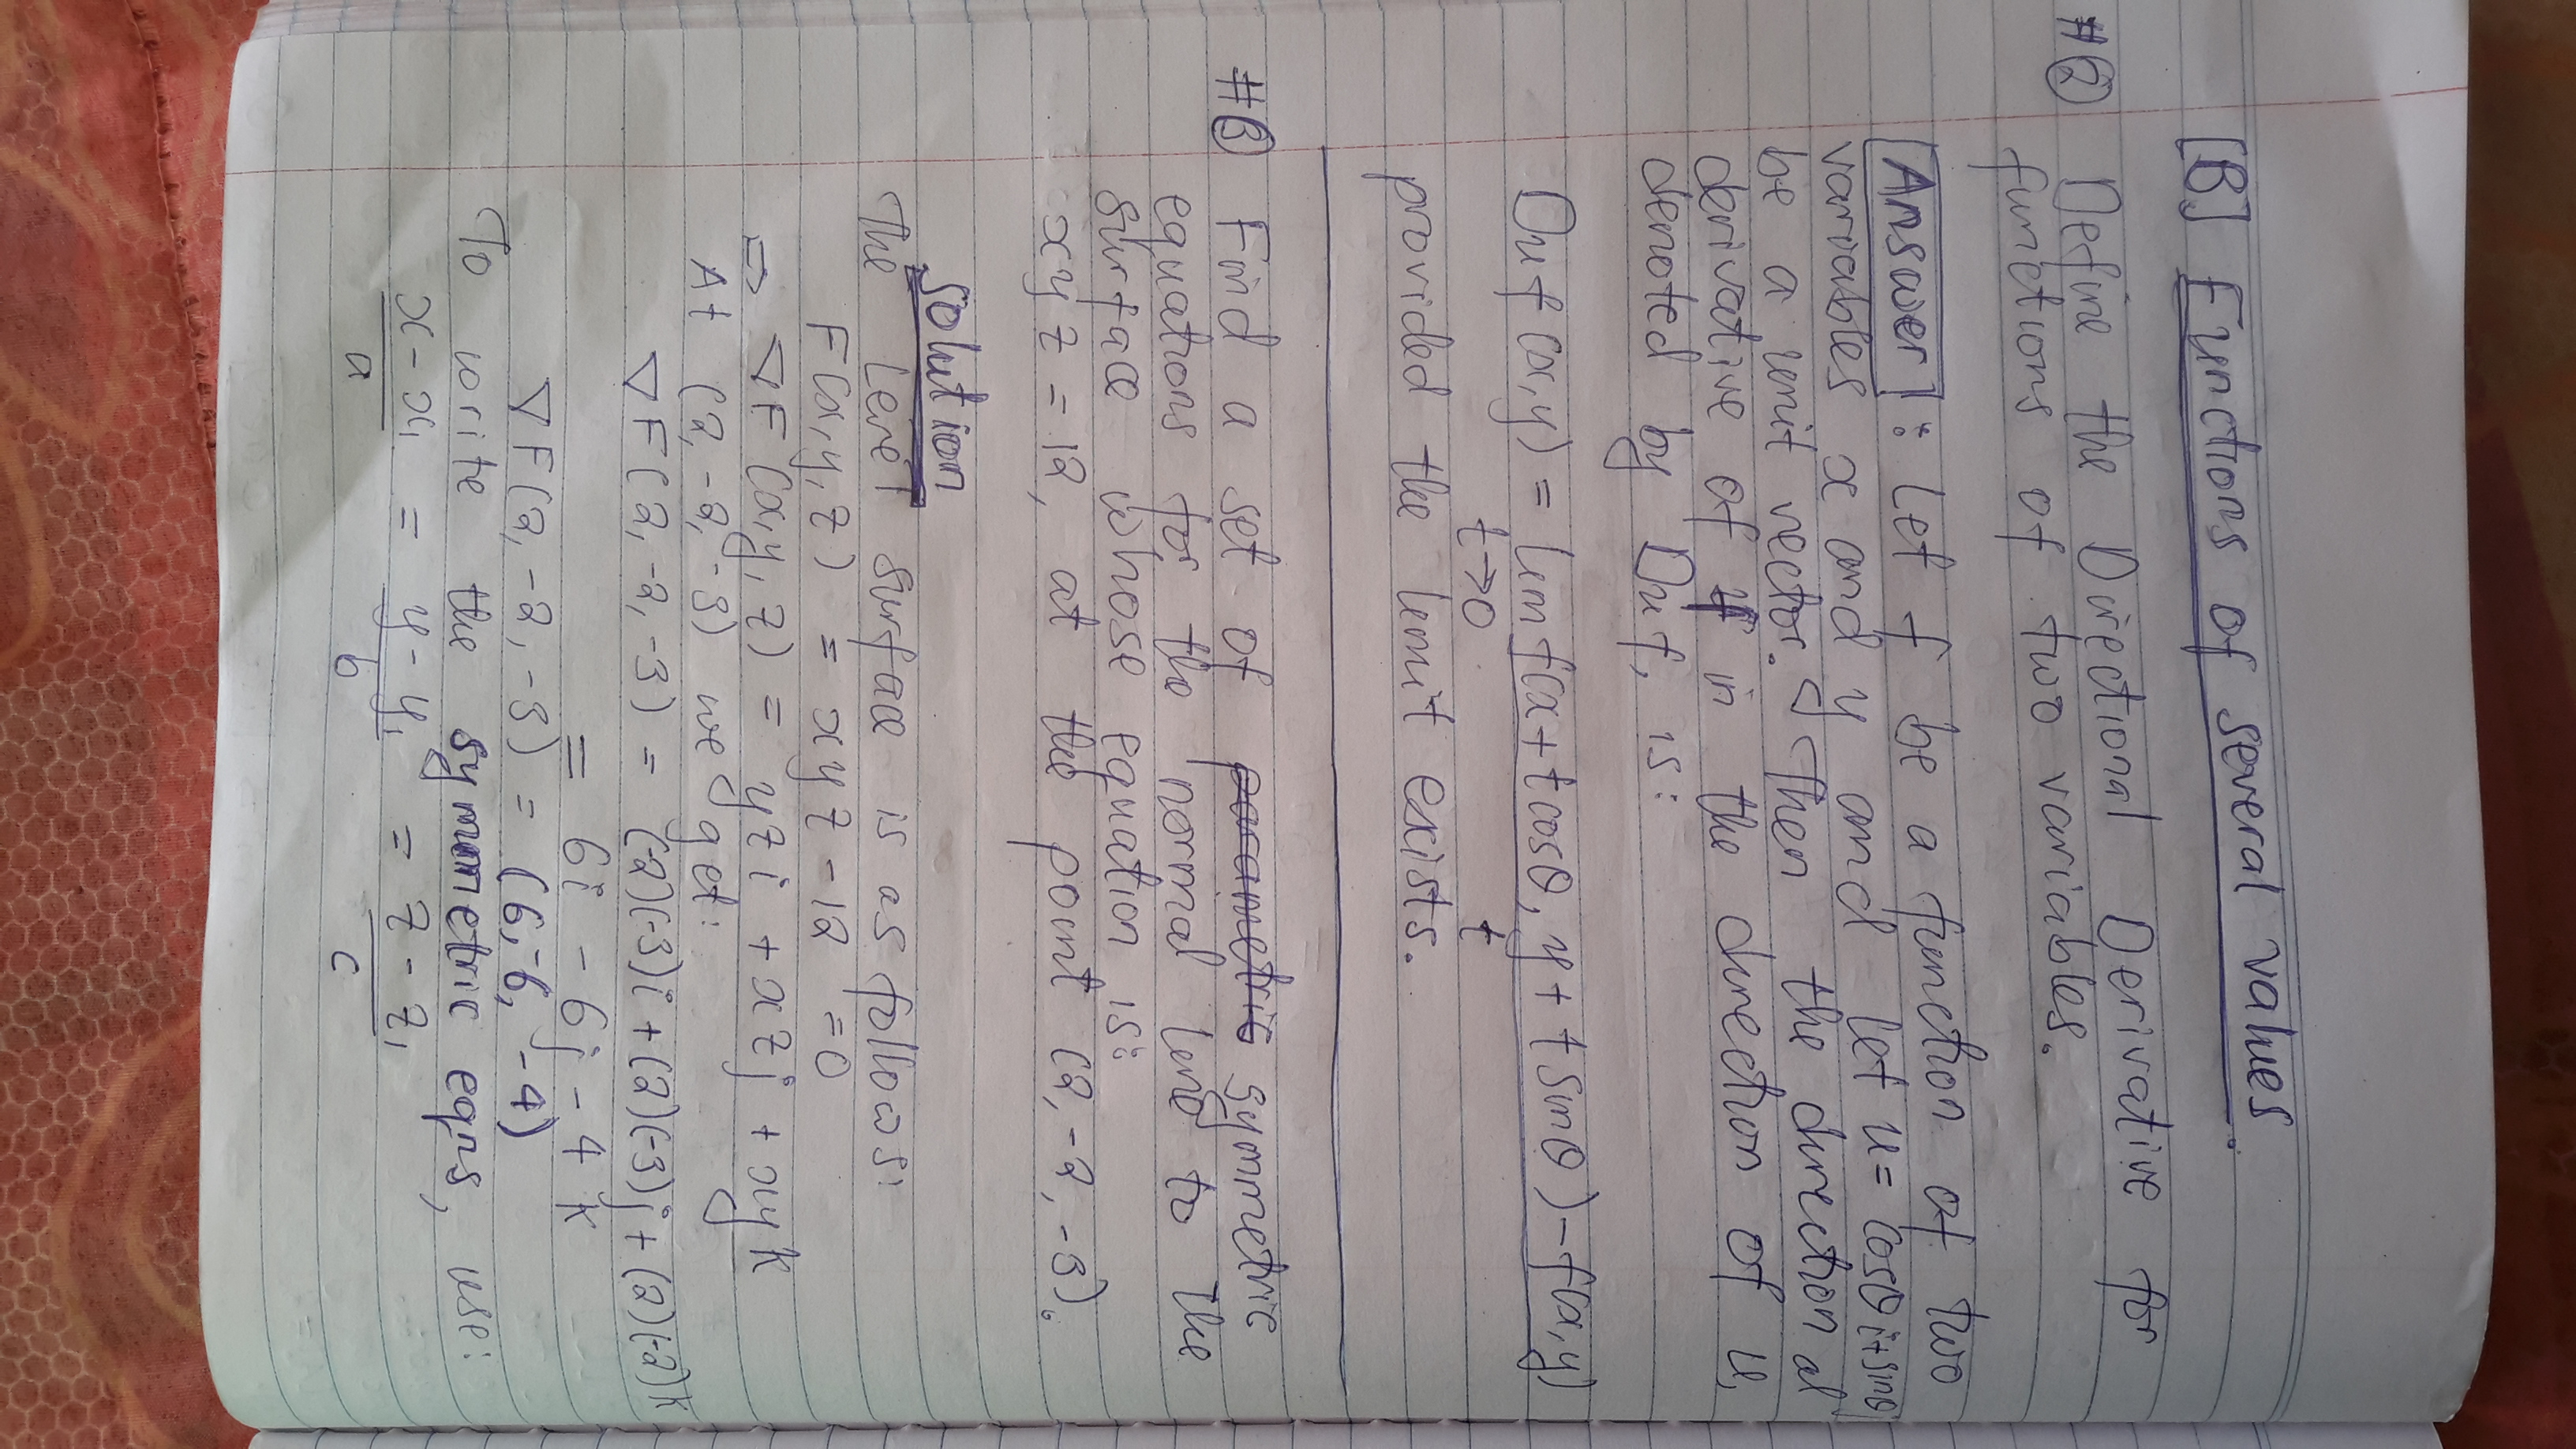 [B] Functions of several values.
#② Define the Directional Derivative for
functions of two variables.
Answer: Let f be a function of two
variables x and y and let u = cosθ i + sinθ
be a unit vector. Then the directional
derivative of f in the direction of u,
denoted by Duf, is:
Duf(x,y) = lim f(x+tcosθ, y+tsinθ)-f(x,y)
t→0 t
provided the limit exists.
#③ Find a set of parametric symmetric
equations for the normal line to the
surface whose equation is:
xyz = 12, at the point (2, -2, -3).
Solution
The level surface is as follows:
F(x,y,z) = xyz - 12 = 0
⇒ ∇F(x,y,z) = yz i + xz j + xy k
At (2, -2, -3) we get:
∇F(2, -2, -3) = (-2)(-3)i + (2)(-3)j + (2)(-2)k
= 6i - 6j - 4k
∇F(2, -2, -3) = (6, -6, -4)
To write the symmetric eqns, use:
x - x₁ = y - y₁ = z - z₁
a b c